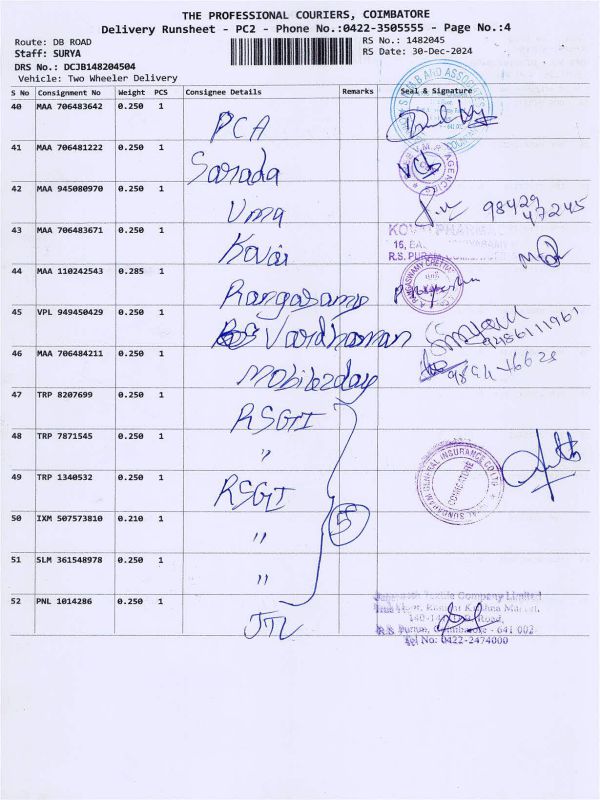 THE PROFESSIONAL COURIERS, COIMBATORE
Delivery Runsheet - PC2 - Phone No.:0422-3505555 - Page No.:4
Route: DB ROAD RS No.: 1482045
Staff: SURYA RS Date: 30-Dec-2024
DRS No.: DCJB148204504
Vehicle: Two Wheeler Delivery
S No Consignment No Weight PCS Consignee Details Remarks Seal & Signature
40 MAA 706483642 0.250 1 PCA
41 MAA 706481222 0.250 1 Sarada
V.M.R AGENCIES
42 MAA 945080970 0.250 1 Uma 98429 47245
43 MAA 706483671 0.250 1 Kovai
KOVAI PHARMA
R.S. PURAM
44 MAA 110242543 0.285 1 Rangasamy
45 VPL 949450429 0.250 1 Vardhaman 9486111961
46 MAA 706484211 0.250 1 Mobile2day
47 TRP 8207699 0.250 1 RSGI
48 TRP 7871545 0.250 1 "
ROYAL SUNDARAM GENERAL INSURANCE CO LTD
COIMBATORE
49 TRP 1340532 0.250 1 RSGI
50 IXM 507573810 0.210 1 " 5
51 SLM 361548978 0.250 1 "
52 PNL 1014286 0.250 1 JTL
Textile Company Limited
Krishna Market,
Road,
R.S. Puram, Coimbatore - 641 002
Tel No: 0422-2474000